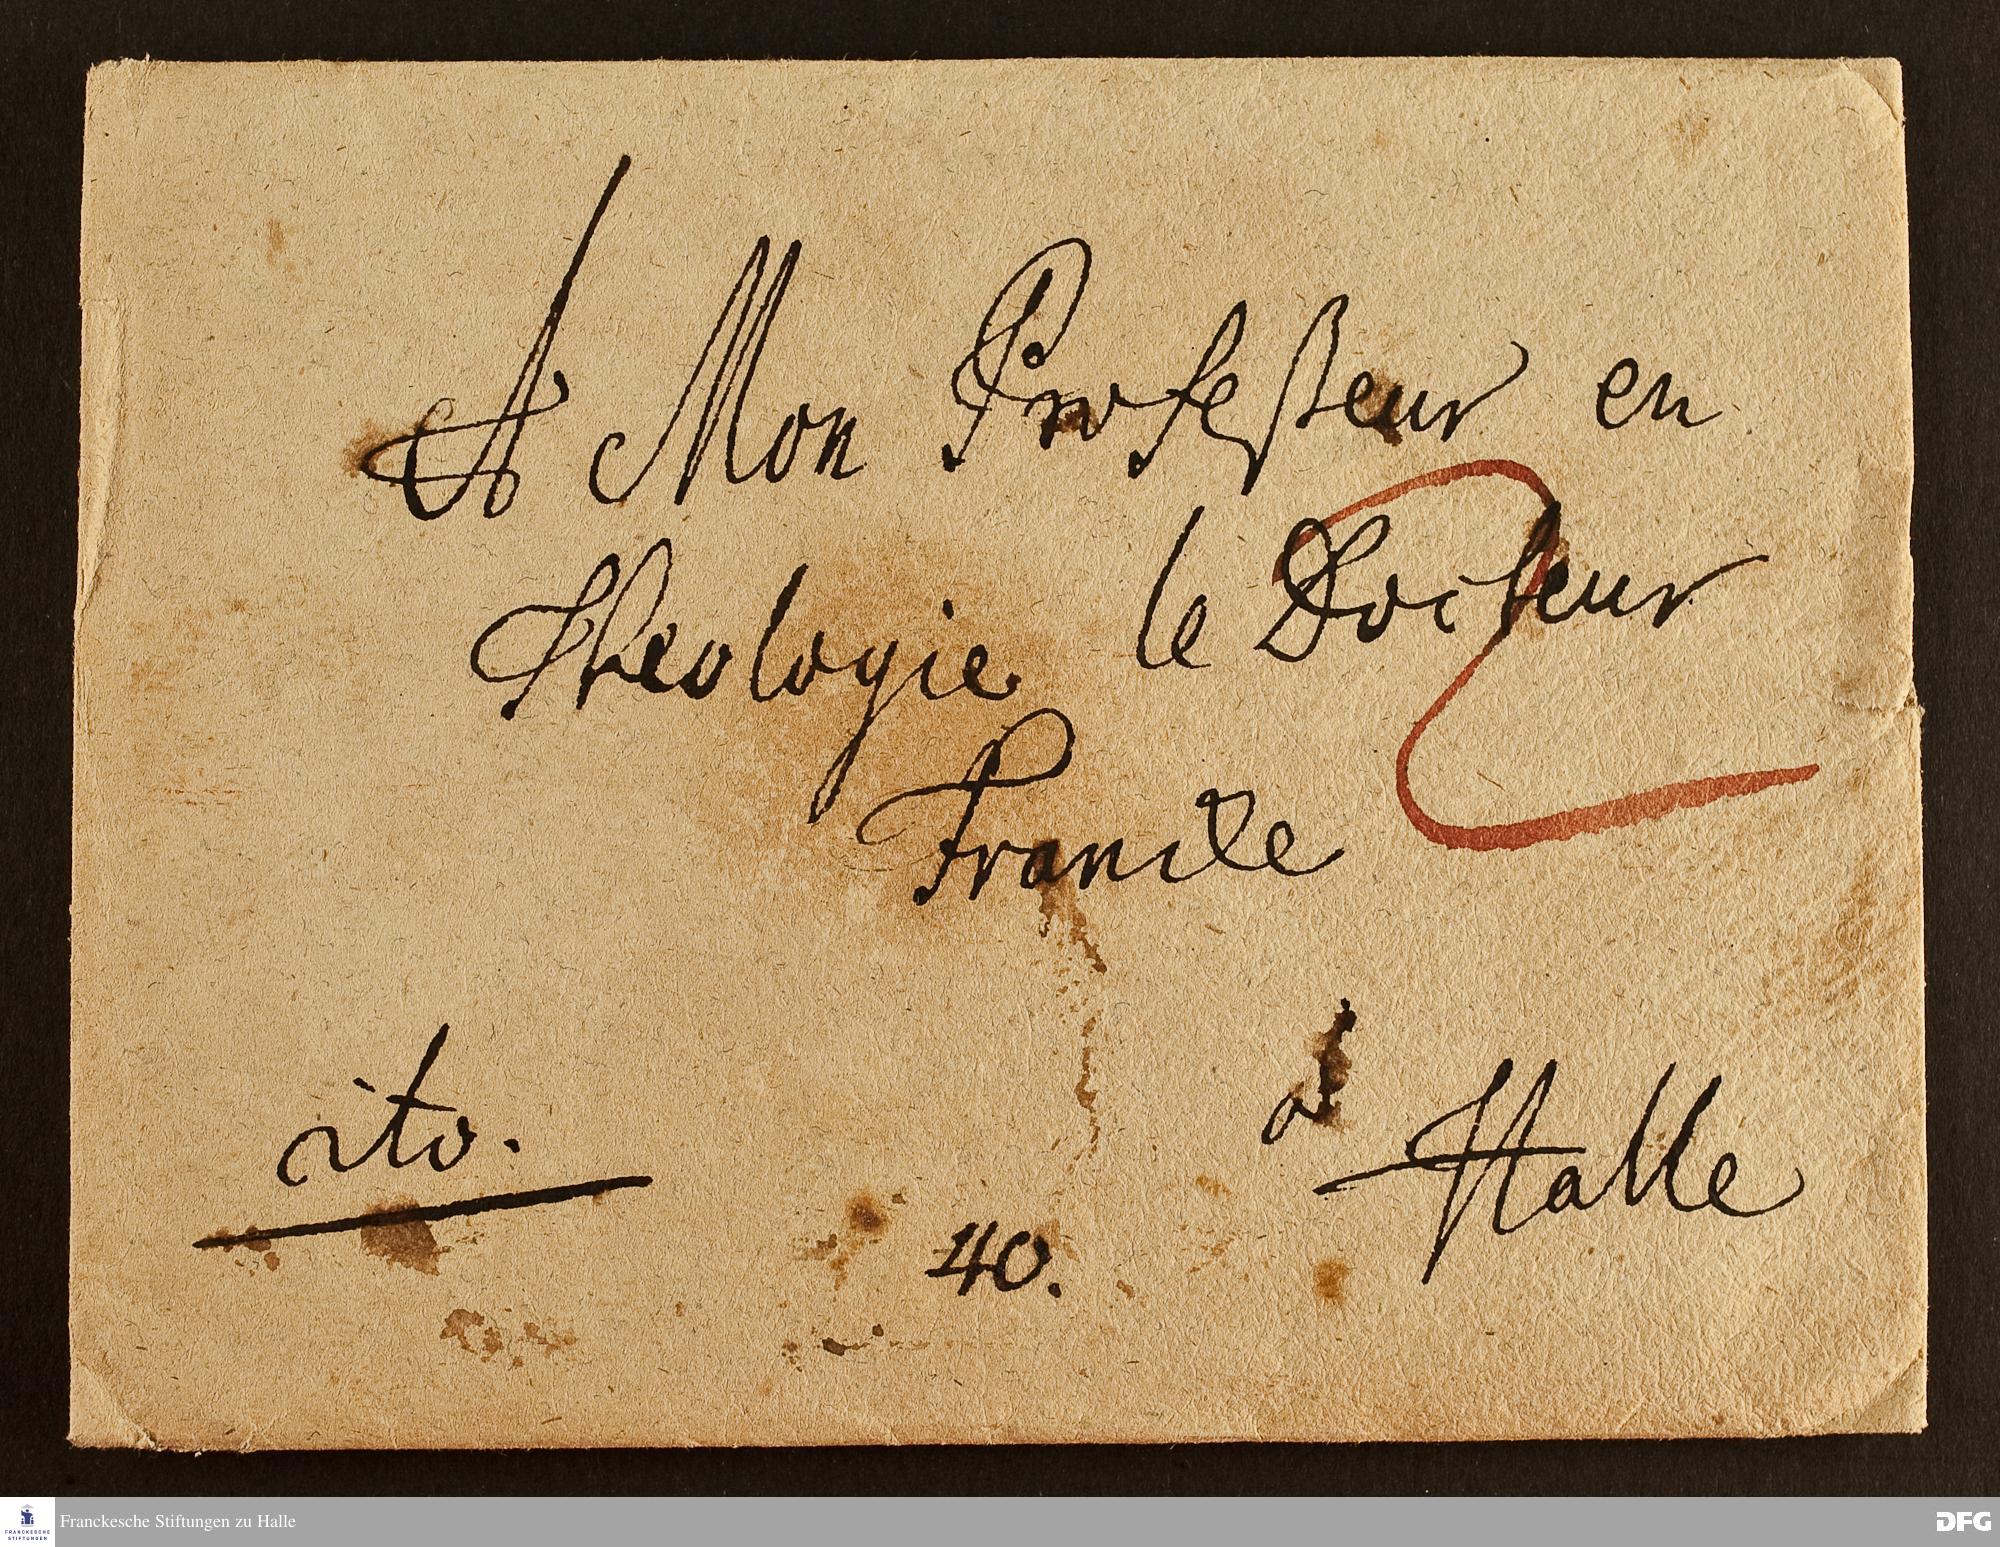 A Mon Professeur en
theologie le Docteur
Francke
à
Halle
cito.
40.
2
Franckesche Stiftungen zu Halle
FRANCKESCHE
STIFTUNGEN
DFG